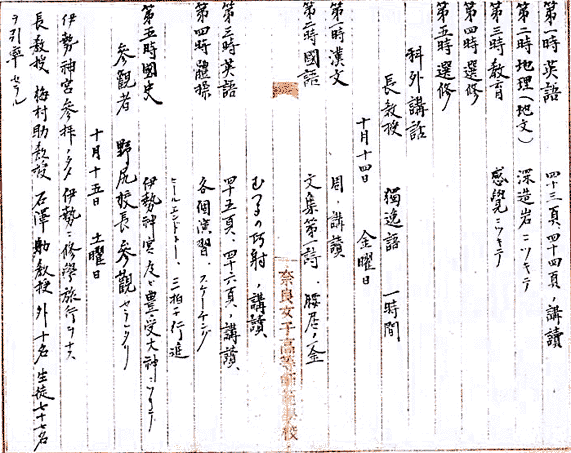 第一時英語　四十三頁、四十四頁、講讀
第二時地理(地文)　深造岩ニツキテ
第三時教育　感覺ニツキテ
第四時選修
第五時選修
科外講話
長教授　獨逸語　一時間
十月十四日　金曜日
第一時漢文　周、講讀
第二時國語　文集第一詩、腰居ノ金
むつるの巧射、講讀
第三時英語　四十五頁、四十六頁、講讀
第四時體操　各個演習、スケーチング
ヒールエンドトー、三拍子行進
第五時國史　伊勢神宮及ビ豊受大神ニツキテ
參觀者　野尻校長參觀セラレタリ
十月十五日　土曜日
伊勢神宮參拝ノタメ伊勢ニ修學旅行ヲナス
長教授　梅村助教授　石澤助教授　外十名　生徒七十七名
ヲ引率セラル
奈良女子高等師範學校